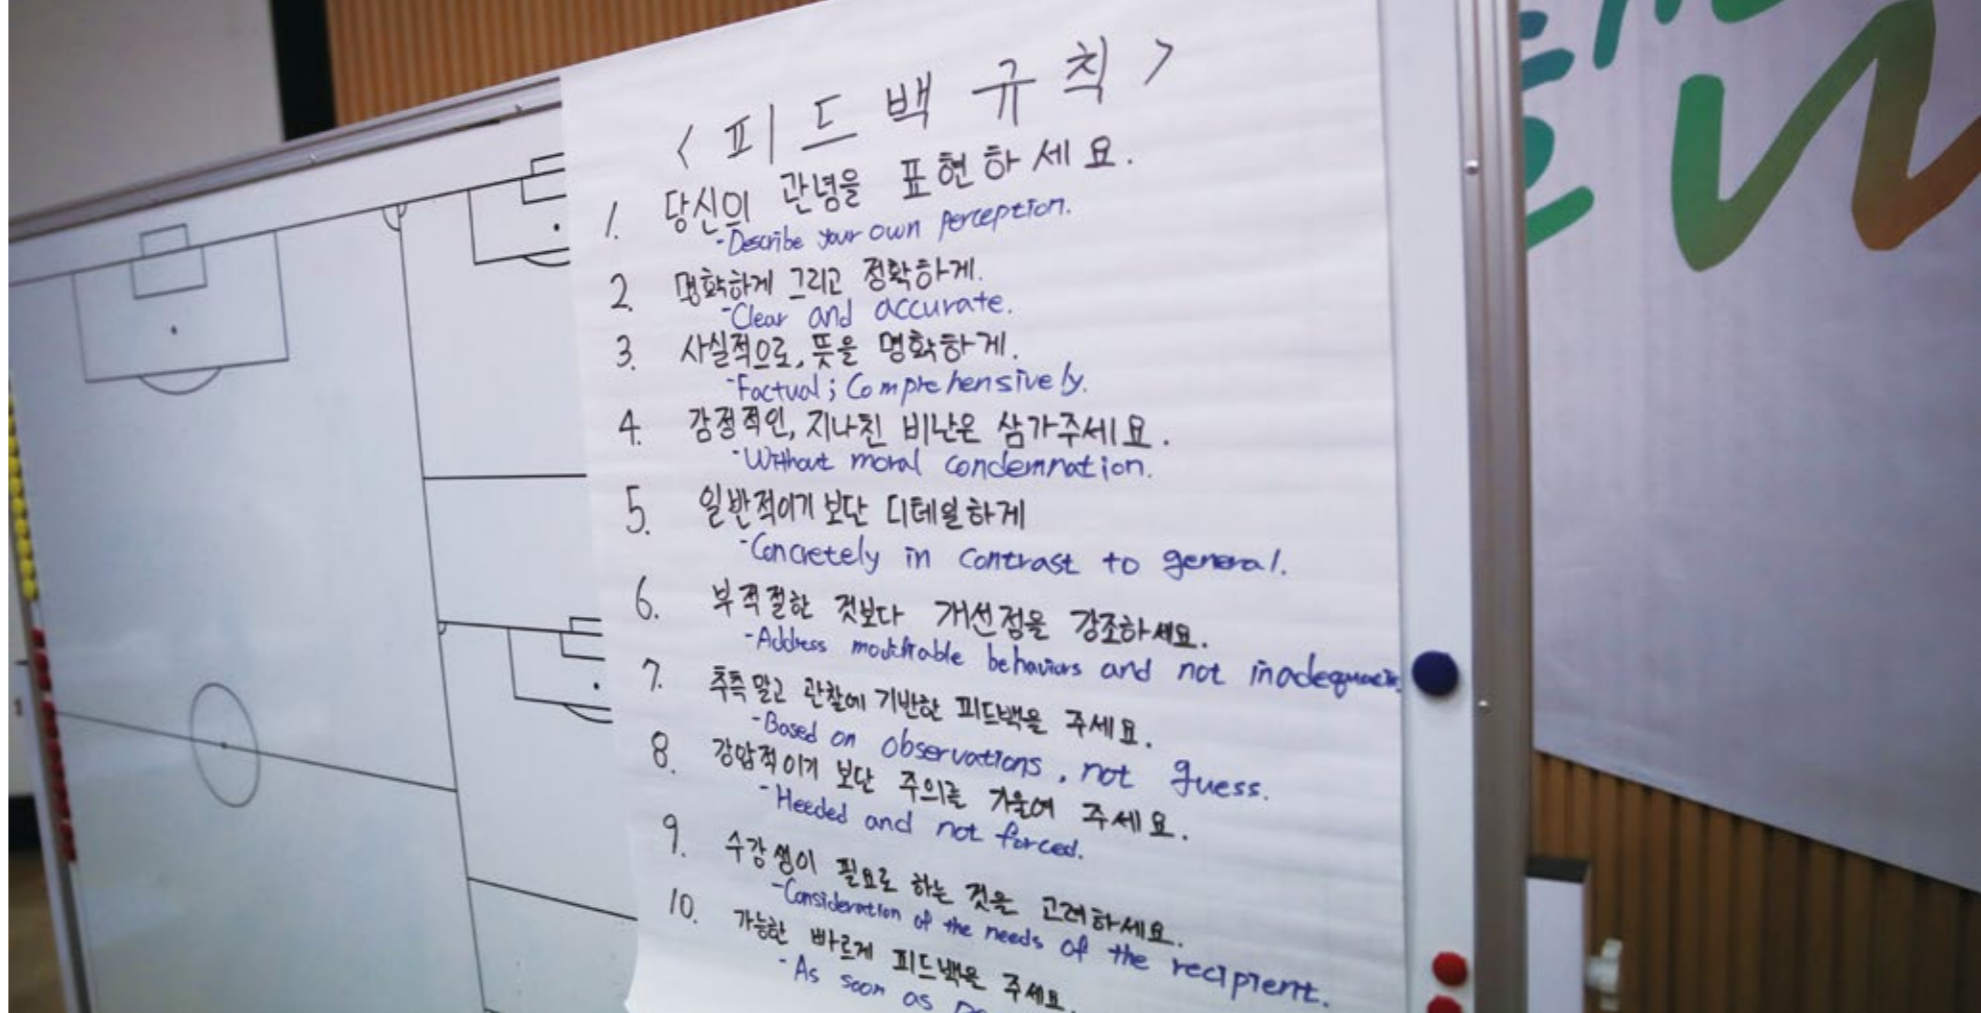 <피드백 규칙>
1. 당신의 관념을 표현하세요.
-Describe your own perception.
2. 명확하게 그리고 정확하게.
-Clear and accurate.
3. 사실적으로, 뜻을 명확하게.
-Factual; Comprehensively.
4. 감정적인, 지나친 비난은 삼가주세요.
-Without moral condemnation.
5. 일반적이기 보단 디테일하게
-Concretely in contrast to general.
6. 부적절한 것보다 개선점을 강조하세요.
-Address modifiable behaviors and not
7. 추측 말고 관찰에 기반한 피드백을 주세요.
-Based on observations, not guess.
8. 강압적이기 보단 주의를 기울여 주세요.
-Heeded and not forced.
9. 수강생이 필요로 하는 것을 고려하세요.
-Consideration of the needs of the recipient.
10. 가능한 빠르게 피드백을 주세요.
-As soon as